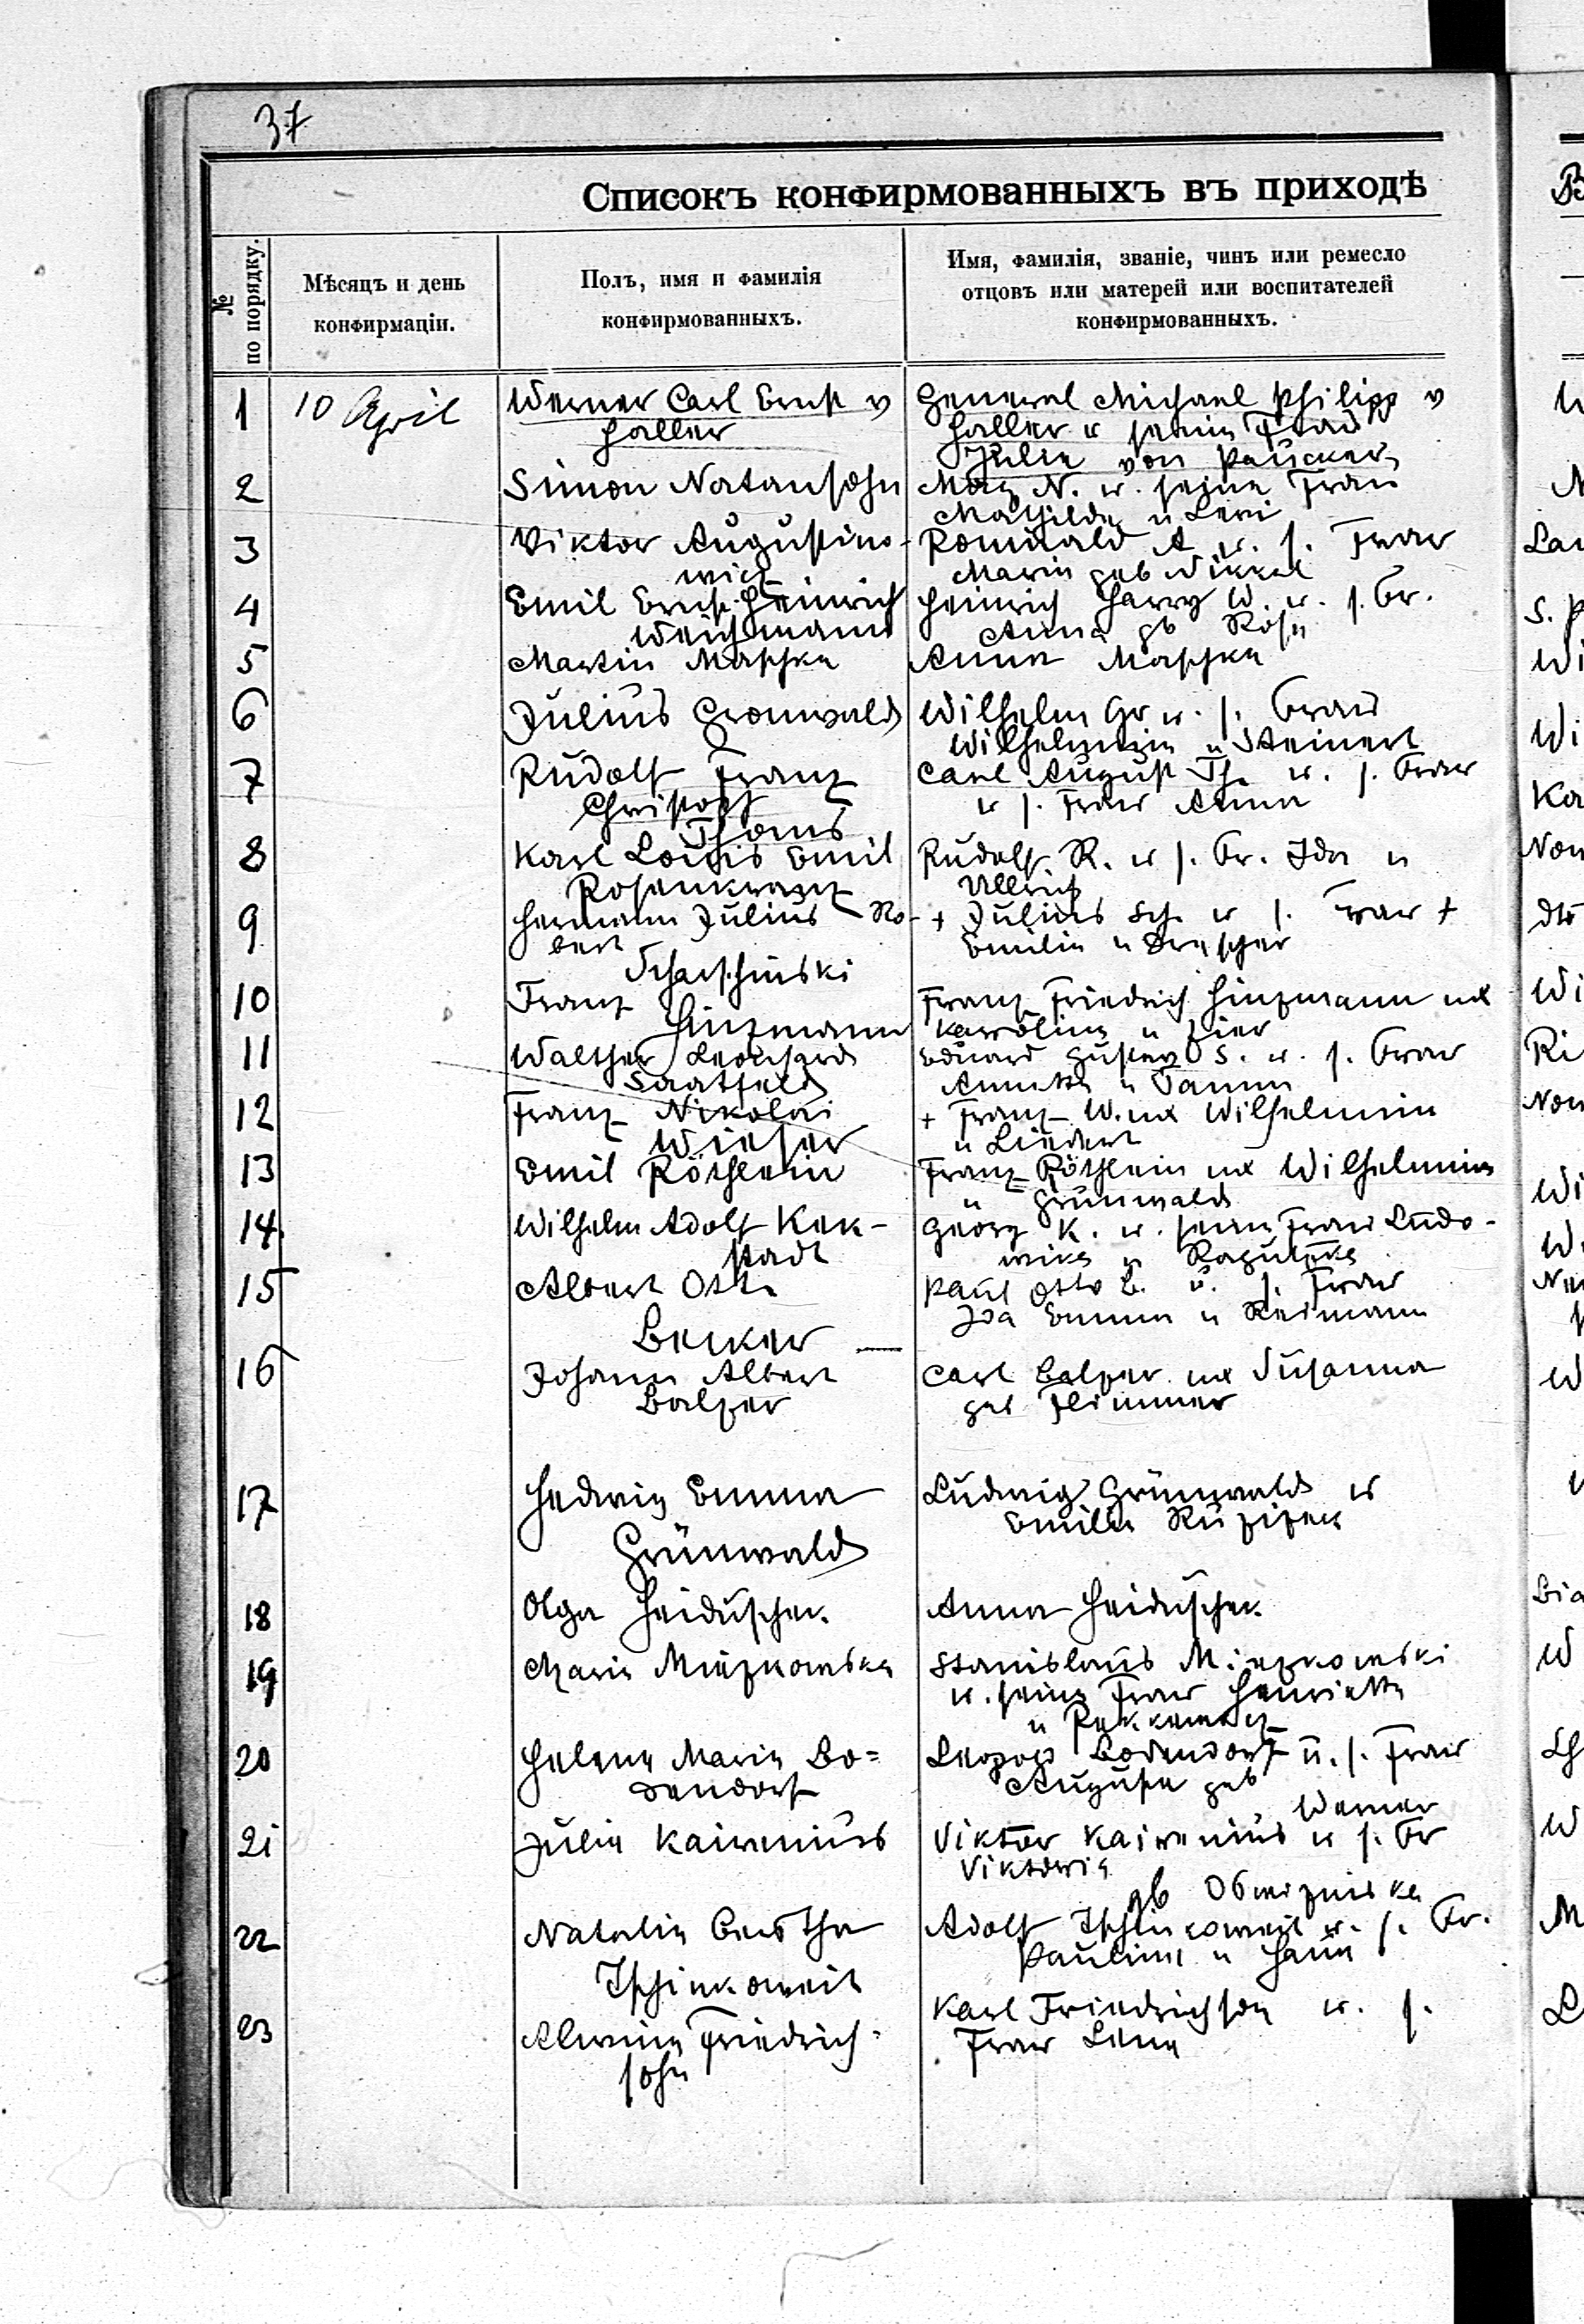 37
Списокъ конфирмованныхъ въ приходѣ
№ по порядку.
Мѣсяцъ и день
конфирмаціи.
Полъ, имя и фамилія
конфирмованныхъ.
Имя, фамилія, званіе, чинъ или ремесло
отцовъ или матерей или воспитателей
конфирмованныхъ.
1 10 April Werner Carl Ernst v
Haller
General Michael Philipp v
Haller u seine Frau
Julie von Paucker
2 Simon Natansohn
Max N. u. seine Frau
Mathilde u Levi
3 Viktor Augustino-
wicz
Romuald A u. s. Frau
Marie geb Nikkel
4 Emil Ernst Heinrich
Weichmann
Heinrich Harry W. u. s. Fr.
Anna gb Rose
5 Martin Maschke
Anna Maschke
6 Julius Gronwald
Wilhelm Gr u. s. Frau
Wilhelmine u Steinert
7 Rudolf Franz
Christoph
Thoms
Carl August Th. u. s. Frau
u s. Frau Anna
8 Karl Louis Emil
Rosenkranz
Rudolf R. u s. Fr. Ida u
Ullrich
9 Hermann Julius Ro-
bert
+ Julius Sch. u s. Frau +
Emilie u Drescher
10 Franz
Hinzmann
Franz Friedrich Hinzmann und
Karoline u Zier
11 Walther Leonhard
Saatfeld
Eduard Gustav S. u. s. Frau
Annette u Tamm
12 Franz Nikolai
Wieser
+ Franz W. und Wilhelmine
u Liedert
13 Emil Röthlein
Franz Röthlein und Wilhelmine
u Grünwald
14. Wilhelm Adolf Kek-
stadt
Georg K. u. seine Frau Ludo-
wike u
15 Albert Otto
Becker
Paul Otto B. u. s. Frau
Ida Emma u Reimann
16 Johann Albert
Balzer
Carl Balzer und Susanna
geb Flimmer
17 Hedwig Emma
Grünwald
Ludwig Grünwald u
Emilie
18 Olga Heiduschek
Anna Heiduschek
19 Marie Miezkowska
Stanislaus Miezkowski
u. seine Frau Henriette
u
20 Helene Marie Bo=
dendorf
Leopold Bodendorf u. s. Frau
Auguste geb
Werner
21 Julie Kairenius
Viktor Kairenius u s. Fr
Viktoria
gb
22 Natalie Bertha
Tschinkoweit
Adolf Tschinkoweit u. s. Fr.
Pauline u Haun
23 Alwine Friedrich-
sohn
Karl Friedrichson u. s.
Frau Lena